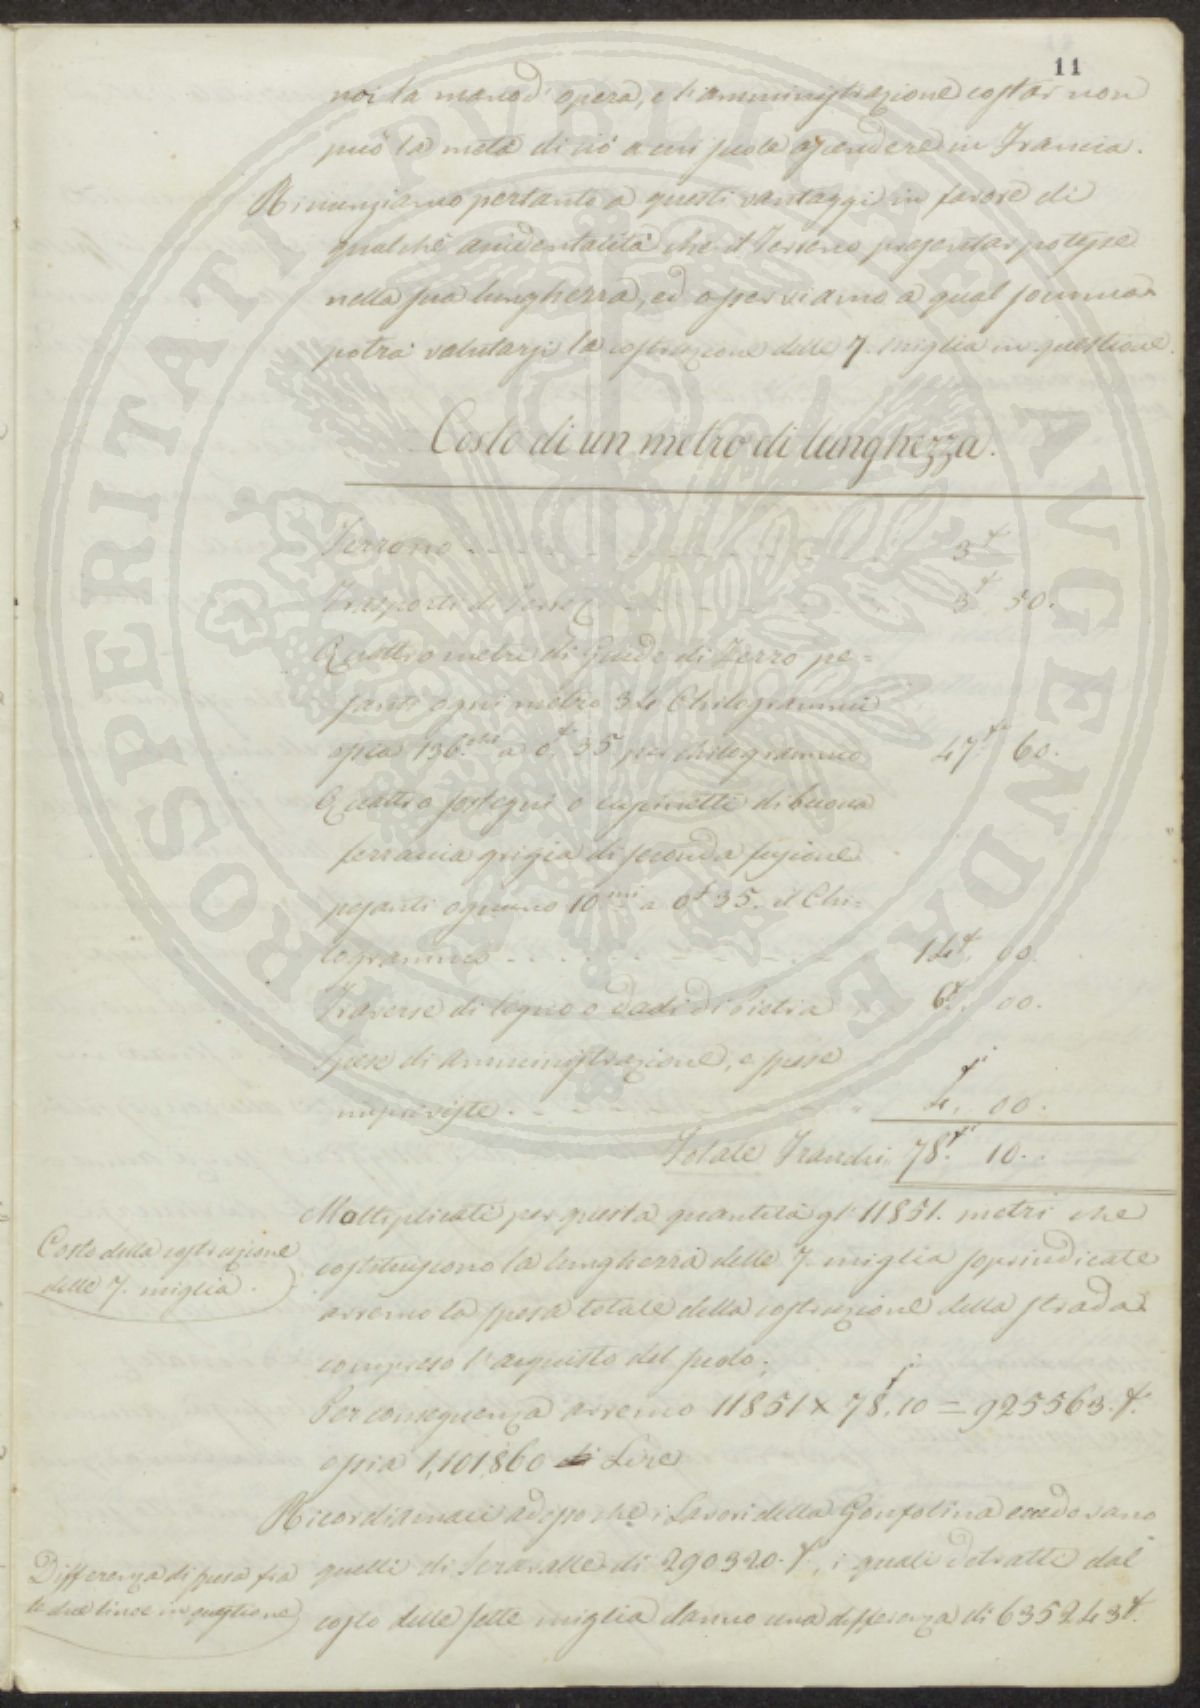 11
noi la mano d'opera, e l'amministrazione costar non
può la metà di ciò a cui suole ascendere in Francia.
Rinunziamo pertanto a questi vantaggi in favore di
qualche accidentalità che il Terreno presentar potesse
nella sua lunghezza, ed osserviamo a qual somma
potrà valutarsi la costruzione delle 7. miglia in questione.
Costo di un metro di lunghezza.
Terreno - - - - - 3f
Trasporti di Terre - - - - - 3f 50.
Quattro metri di Guide di Ferro pe=
santi ogni metro 34 Chilogrammi
ossia 136. chi a 0f. 35. per chilogrammo 47.fi 60.
Quattro sostegni o cuscinetti di buona
ferraccia grigia di seconda fusione
pesanti ognuno 10mi a 0f 35. il Chi=
logrammo - - - - - 14f. 00.
Traverse di legno o dadi di Pietra 6f. 00.
Spese di amministrazione, e spese
impreviste. - - - - - 4.fi 00.
Totale Franchi 78.fi 10.
Moltiplicati per questa quantità gl' 11851. metri che
costituiscono la lunghezza delle 7. miglia soprindicate
avremo la spesa totale della costruzione della strada
compreso l'acquisto del suolo.
Per conseguenza avremo 11851 x 78f.10 = 925563.fi
ossia 1,101,860 di Lire
Ricordiamoci adesso che i Lavori della Gonfolina eccedevano
quelli di Seravalle di 290320.fi, i quali detratti dal
costo delle sette miglia danno una differenza di 635243f.
Costo della costruzione
delle 7. miglia.
Differenza di spesa fra
le due linee in questione
PROSPERITATI PUBLICAE AVGENDAE